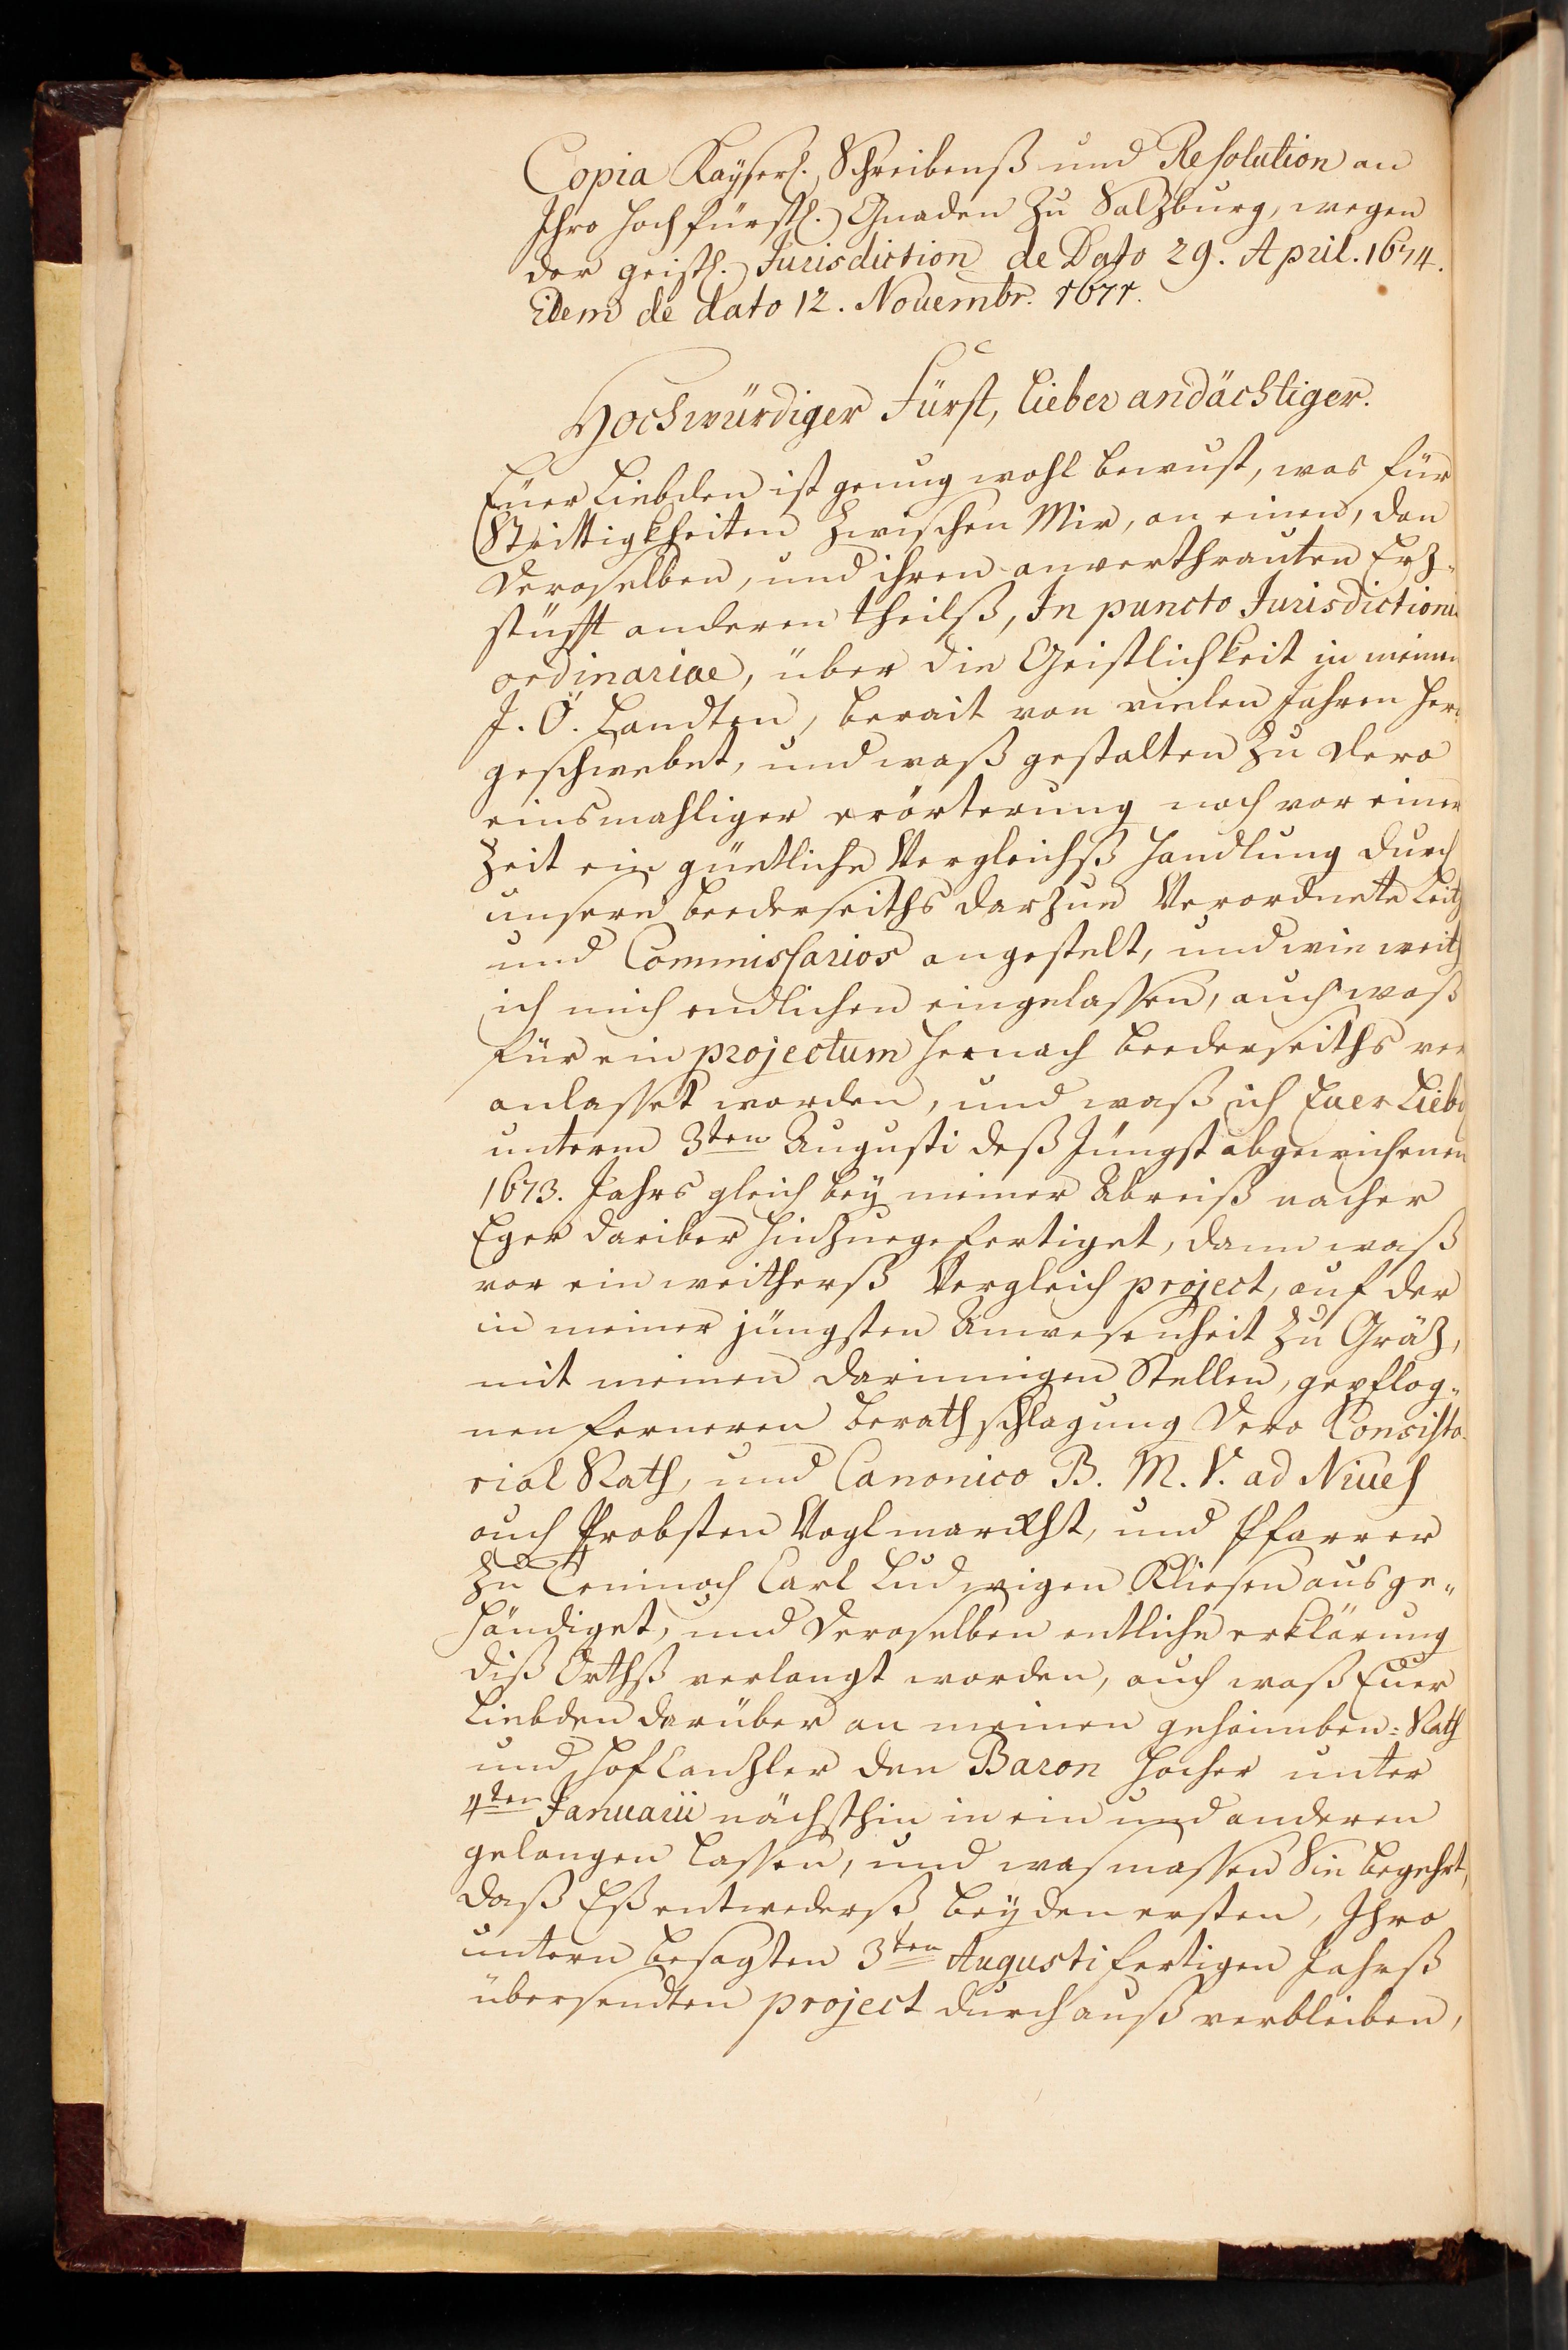 Copia Kayserl. Schreibenß und Resolution an
Ihro hochfürstl. Gnaden zu Salzburg, wegen
der geistl. Jurisdiction de Dato 29. April. 1674.
Idem de dato 12. Novembr. 1671.
Hochwürdiger Fürst, lieber andächtiger.
Euer Liebden ist genug wohl bewust, was für
Strittigkheiten zwischen Mir, an einen, dan
deroselben, und ihren anverthrauten Erz-
stüfft anderen theilß, In puncto Jurisdictionis
ordinariae, über die Geistlichkeit in meinen
I. Ö. Landten, berait von vielen Jahren her
geschwebet, und waß gestalten zu dero
einsmahliger erörterung noch vor einer
Zeit ein güettliche Vergleichß handlung durch
unsere beederseiths darzue Verordnete
und Commissarios angestelt, und wie weith
ich mich endlichen eingelassen, auch waß
für ein projectum hernach beederseiths ver
anlasset worden, und waß ich Euer Liebd
unterm 3ten Augusti deß Jüngst abgewichenen
1673. Jahrs gleich bey meiner Abreiß nacher
Eger dariber hinzuegefertiget, dann waß
vor ein weitherß Vergleich project, auf der
in meiner jüngsten Anwesenheit zu Gräz,
mit meinen darinnigen Stellen, gepflog-
nen ferneren berathschlagung dero Consisto-
rial Rath, und Canonico B. M. V. ad Nives
auch Probsten Voglmarckht, und Pfarrer
zu Carl Ludwigen ausge-
händiget, und deroselben entliche erklärung
diß Orthß verlangt worden, auch waß Euer
Liebden darüber an meinen gehaimben = Rath
und HofCanzler den Baron Hocher unter
4ten Januarii nächsthin in ein und anderen
gelangen lassen, und wasmassen Sie begehrt,
daß Eß entwederß bey den ersten, Ihro
untern besagten 3ten Augusti fertigen Jahrß
übersendten project durchauß verbleiben,